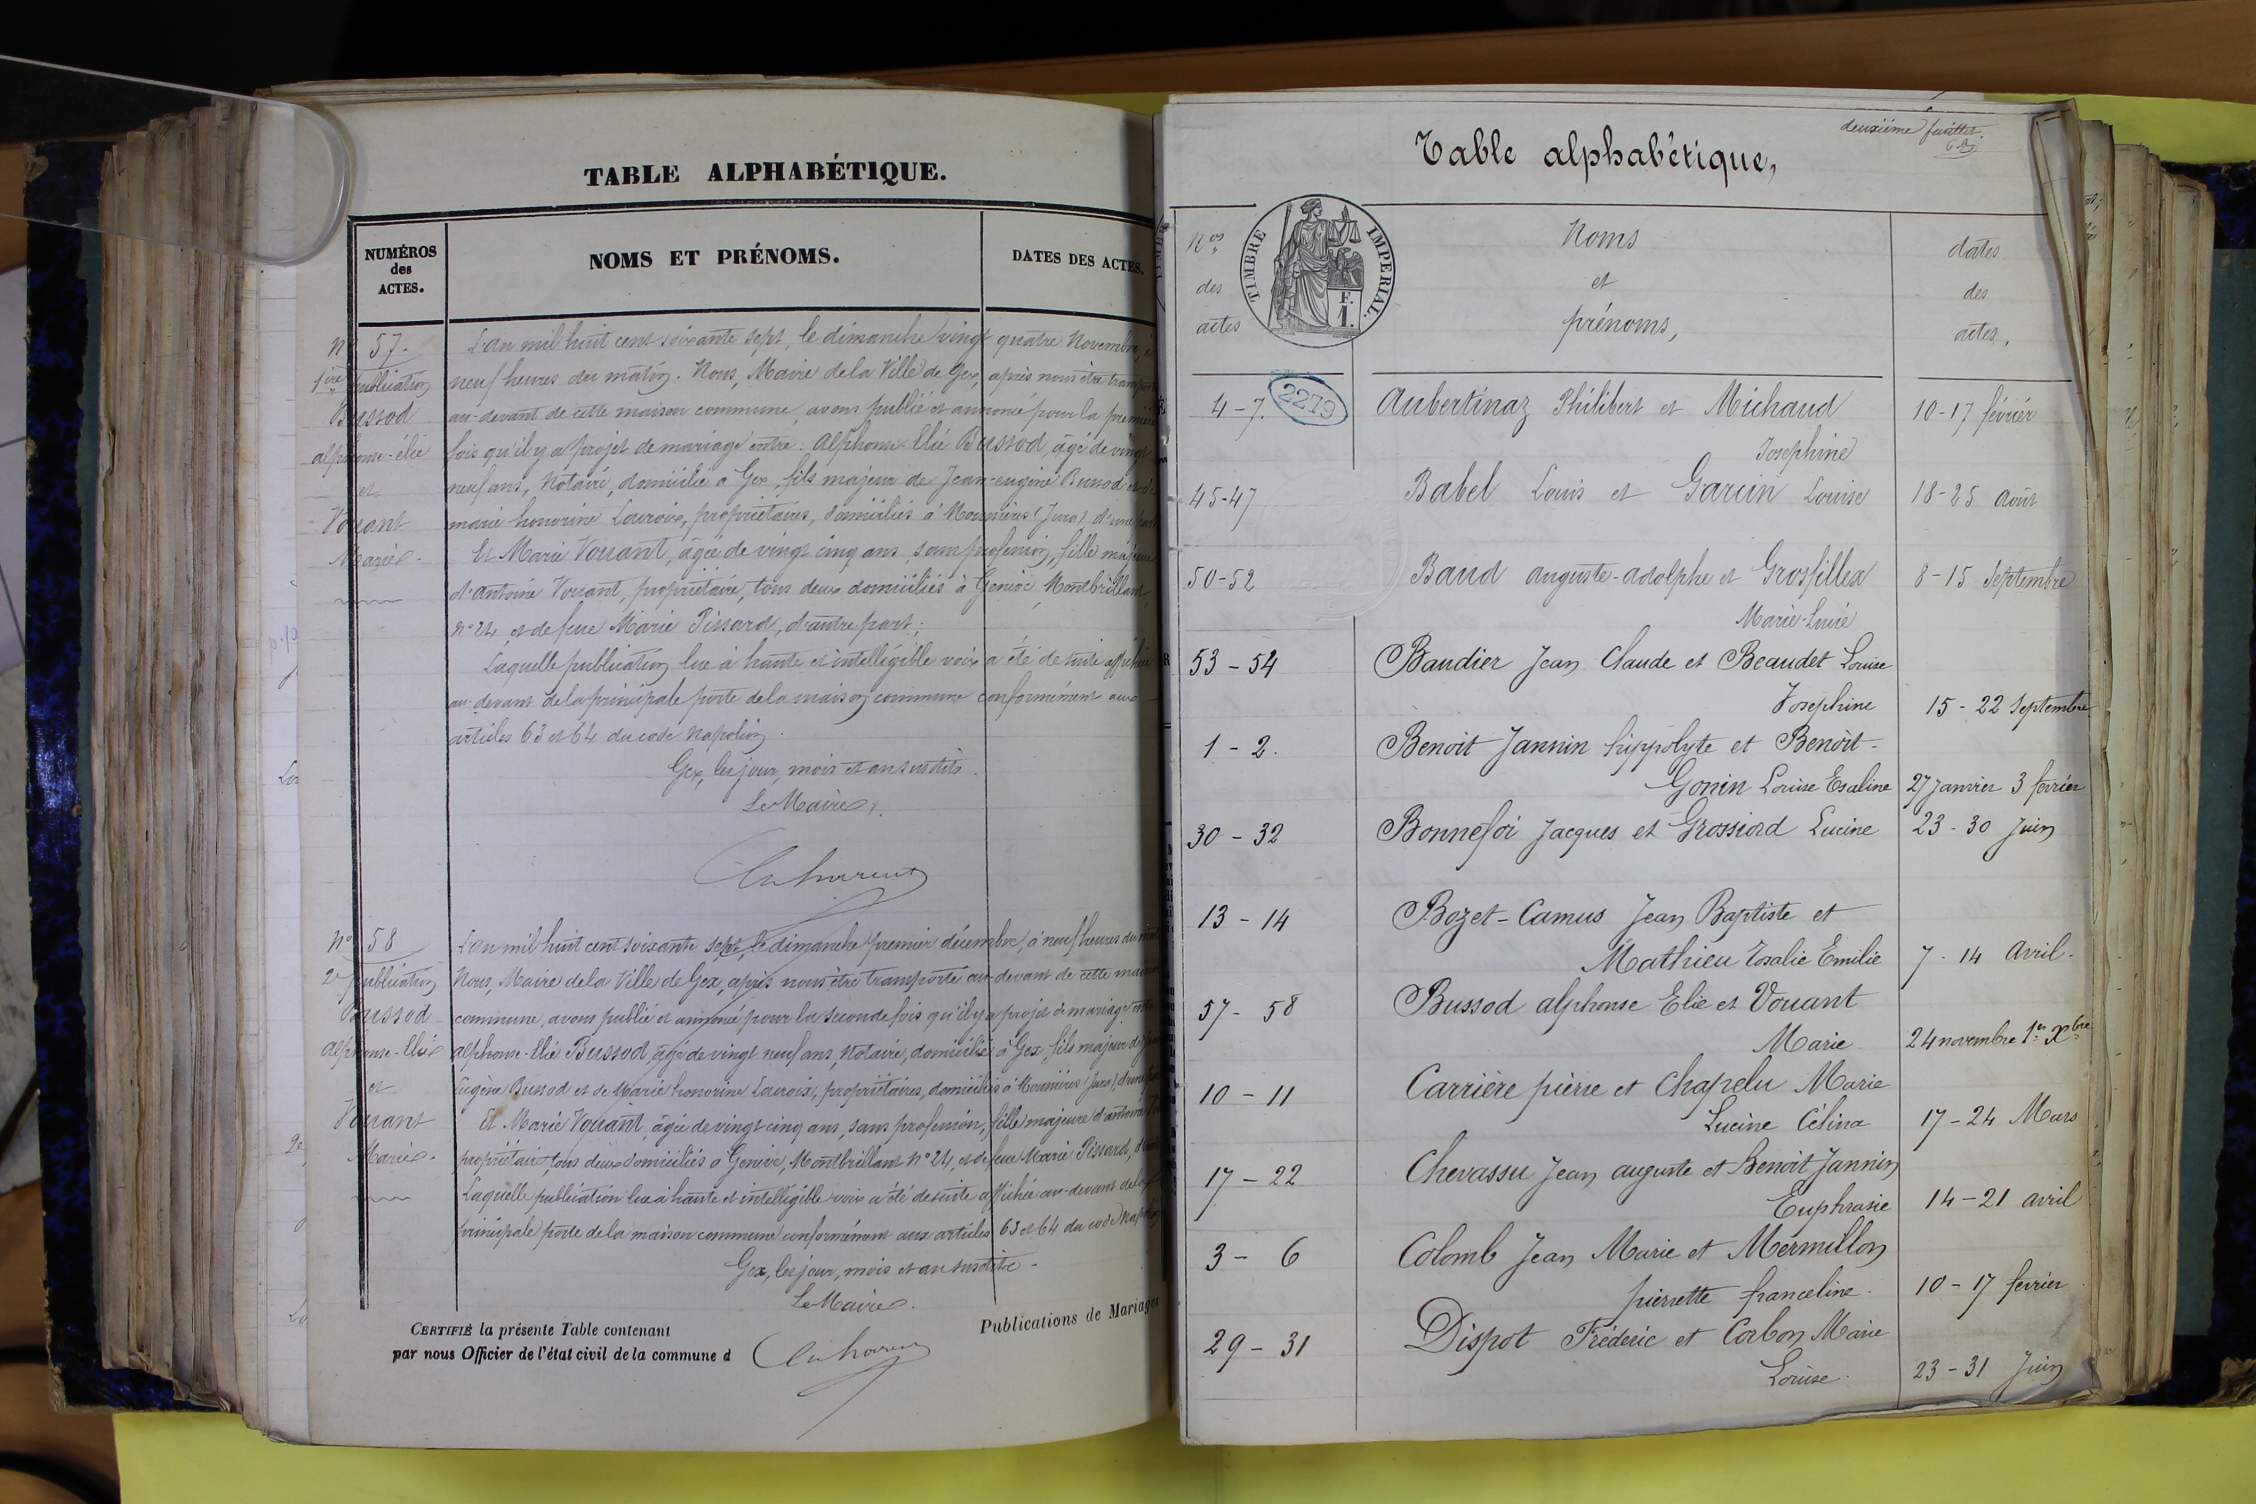 TABLE ALPHABÉTIQUE.
NUMÉROS
des
ACTES.
NOMS ET PRÉNOMS.
DATES DES ACTES.
No 57.
1ère publication
Bussod
alphonse-élie
et
Vouant
Marie.
L'an mil huit cent soixante sept, le dimanche vingt quatre Novembre, à
neuf heures du matin. Nous, Maire de la Ville de Gex, après nous être transporté
au-devant de cette maison commune avons publié et annoncé pour la première
fois qu'il y a projet de mariage entre: Alphonse Elie Bussod, âgé de vingt
neuf ans, Notaire, domicilié à Gex, fils majeur de Jean-eugène Bussod et de
marie honorine Lacroix, propriétaires, domiciliés à Mournières (Jura) d'une part
Et Marie Vouant, âgée de vingt cinq ans, sans profession, fille majeure
d'Antoine Vouant, propriétaire, tous deux domiciliés à Genève, Montbrillant
No 24, et de feue Marie Pissard, d'autre part;
Laquelle publication lue à haute et intelligible voix a été de suite affichée
au-devant de la principale porte de la maison commune conformément aux
articles 63 et 64 du code Napoléon.
Gex, les jour, mois et an susdits.
Le Maire,
No 58
2e publication
Bussod
Alphonse-Elie
et
Vouant
Marie.
L'an mil huit cent soixante sept, le dimanche premier décembre, à neuf heures du
Nous, Maire de la Ville de Gex, après nous être transporté au-devant de cette maison
commune, avons publié et annoncé pour la seconde fois qu'il y a projet de mariage
alphonse-Elie Bussod, âgé de vingt neuf ans, Notaire, domicilié à Gex, fils majeur de
Eugène Bussod et de Marie honorine Lacroix, propriétaires, domiciliés à Mournières (Jura) d'une
Et Marie Vouant, âgée de vingt cinq ans, sans profession, fille majeure d'antoine
propriétaire, tous deux domiciliés à Genève, Montbrillant No 24, et de feue Marie Pissard,
Laquelle publication lue à haute et intelligible voix a été de suite affichée au-devant de la
principale porte de la maison commune conformément aux articles 63 et 64 du code Napoléon
Gex, les jour, mois et an susdits.
Le Maire.
CERTIFIÉ la présente Table contenant
Publications de Mariages
par nous Officier de l'état civil de la commune d
deuxième feuillet.
Table alphabétique,
Nos
des
actes
TIMBRE IMPERIAL.
F.
1.
Noms
et
prénoms,
dates
des
actes,
2279
4-7. Aubertinaz Philibert et Michaud 10-17 février
Josephine
45-47 Babel Louis et Garcin Louise 18-25 Août
50-52 Baud auguste-adolphe et Grosfillex 8-15 Septembre
Marie-Lucie
53-54 Baudier Jean Claude et Beaudet Louise
Josephine 15-22 Septembre
1-2. Benoit Jannin hippolyte et Benoit-
Gonin Louise Esaline 27 Janvier 3 février
30-32 Bonnefoi Jacques et Grossiord Lucine 23-30 Juin
13-14 Bozet-Camus Jean Baptiste et
Mathieu Rosalie Emilie 7-14 Avril.
57-58 Bussod alphonse Elie et Vouant
Marie 24 novembre 1er Xbre
10-11 Carrière pierre et Chapelu Marie
Lucine Célina 17-24 Mars
17-22 Chevassu Jean auguste et Benoit Jannin
Euphrasie 14-21 avril
3-6 Colomb Jean Marie et Mermillon
pierrette franceline. 10-17 fevrier
29-31 Dispot Fréderic et Corbon Marie
Louise. 23-31 Juin